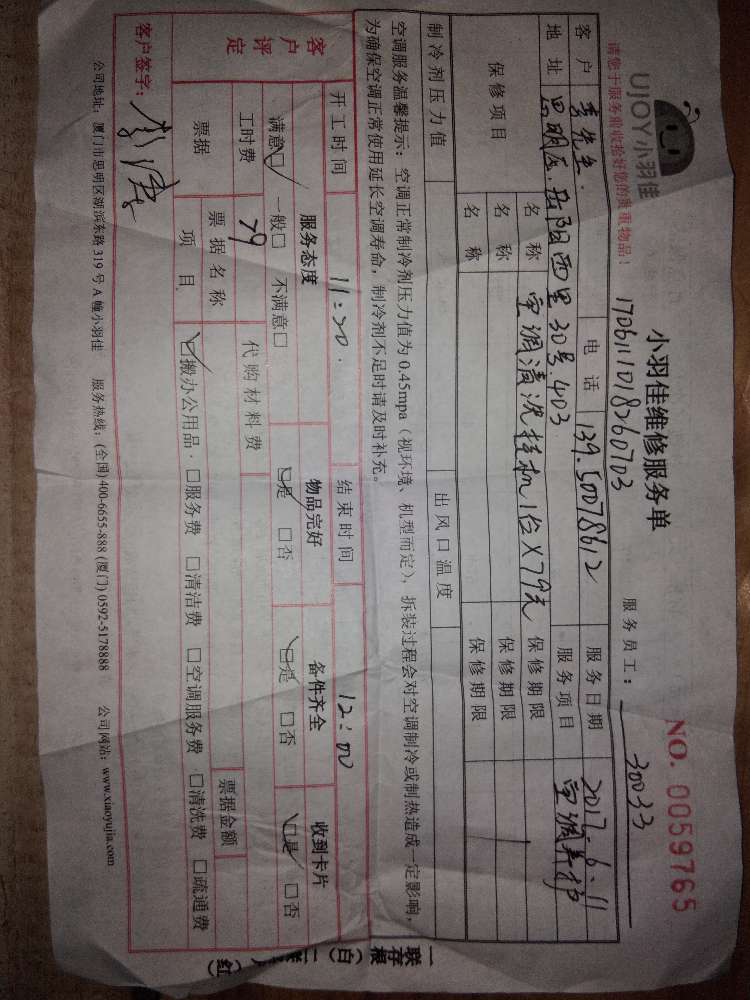 UJOY小羽佳
小羽佳维修服务单
NO. 0059765
请您于服务前收拾好您的贵重物品！
1706111018260703
服务员工： 30033
客户 李先生. 电话 139.50078612 服务日期 2017.6.11
地址 思明区.岳阳西里30号.403 服务项目 空调养护
保修项目 名称 空调清洗挂机1台X79元 保修期限
名称 保修期限
名称 保修期限
制冷剂压力值 出风口温度
空调服务温馨提示：空调正常制冷剂压力值为0.45mpa（视环境、机型而定），拆装过程会对空调制冷或制热造成一定影响，
为确保空调正常使用延长空调寿命，制冷剂不足时请及时补充。
开工时间 11:20. 结束时间 12:00
客户评定 服务态度 物品完好 备件齐全 收到卡片
满意☑ 一般□ 不满意□ ☑是 □否 ☑是 □否 ☑是 □否
工时费 79 代购材料费
票据 票据名称 票据金额
项目 ☑搬办公用品 □服务费 □清洁费 □空调服务费 □清洗费 □疏通费
客户签字：
公司地址：厦门市思明区湖滨东路319号A幢小羽佳 服务热线：(全国)400-6655-888 (厦门)0592-5178888 公司网站：www.xiaoyujia.com
一联存根（白）二
（红